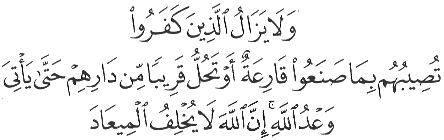 وَلَا يَزَالُ ٱلَّذِينَ كَفَرُوا۟
تُصِيبُهُم بِمَا صَنَعُوا۟ قَارِعَةٌ أَوْ تَحُلُّ قَرِيبًا مِّن دَارِهِمْ حَتَّىٰ يَأْتِىَ
وَعْدُ ٱللَّهِ ۚ إِنَّ ٱللَّهَ لَا يُخْلِفُ ٱلْمِيعَادَ